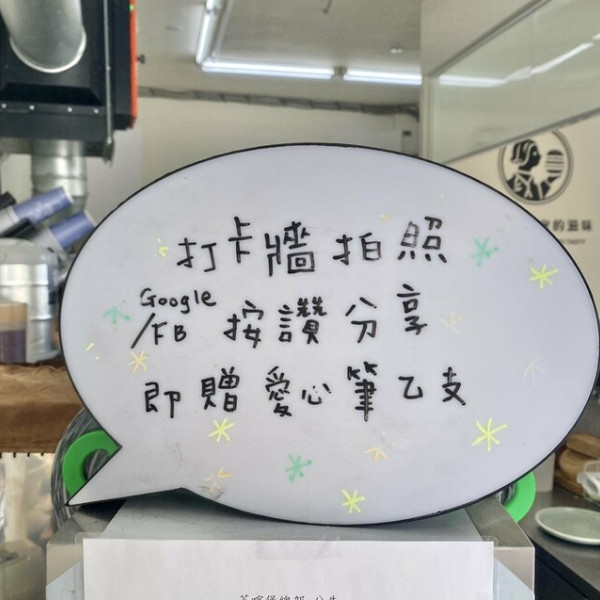 打卡牆拍照
Google
/FB 按讚分享
即贈愛心筆乙支
的滋味